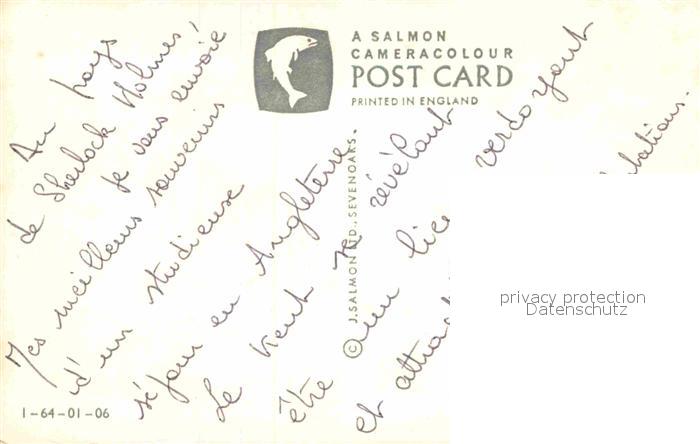 A SALMON
CAMERACOLOUR
POST CARD
PRINTED IN ENGLAND
© J. SALMON LTD., SEVENOAKS.
Au pays
de Sherlock Holmes,
je vous envoie
mes meilleurs souvenirs
d'un studieux
séjour en Angleterre.
Le Kent se révélant
être un lieu verdoyant
et
1-64-01-06
privacy protection
Datenschutz